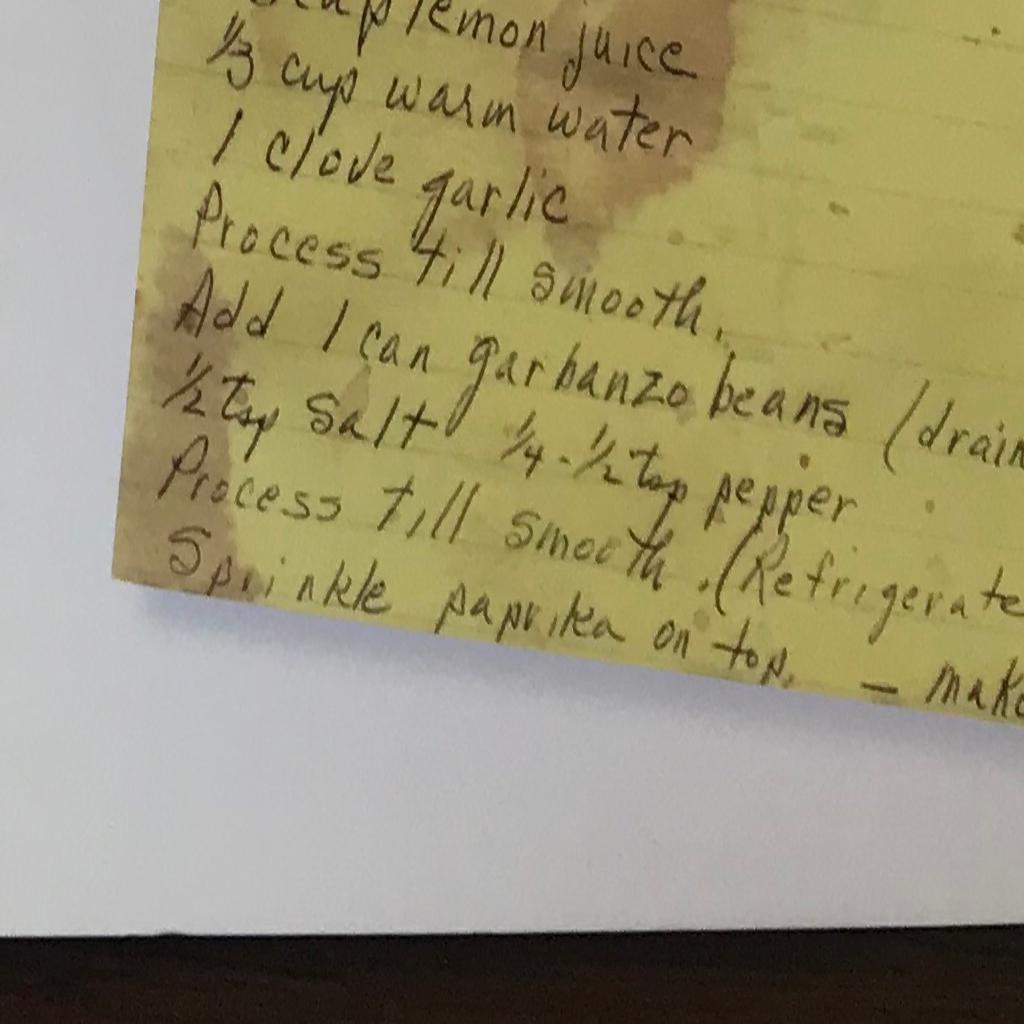 cup lemon juice
1/3 cup warm water
1 clove garlic
Process till smooth.
Add 1 can garbanzo beans (drain
1/2 tsp salt 1/4-1/2 tsp pepper
Process till smooth. (Refrigerate
Sprinkle paprika on top. - make